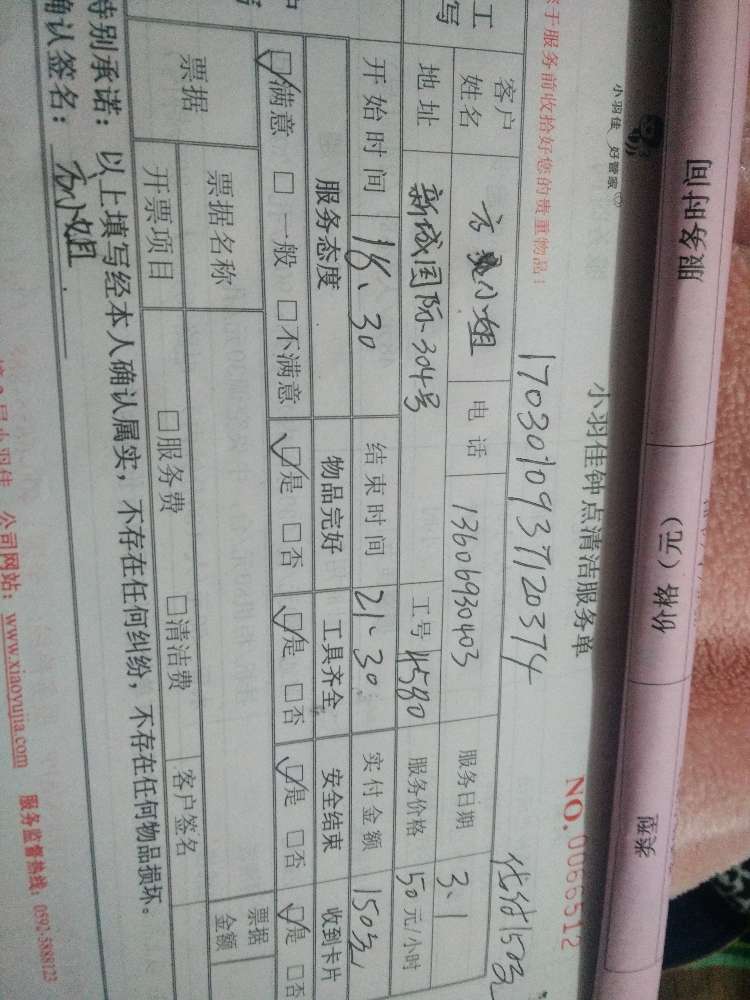 服务时间 价格（元） 类面
小羽佳 好管家
小羽佳钟点清洁服务单 NO.0066512
您于服务前收拾好您的贵重物品！ 1703010937120374 代付150元
客户姓名 方 小姐 电话 13606930403 服务日期 3、1
地址 新城国际、304号 工号 4580 服务价格 50元/小时
开始时间 18、30 结束时间 21、30 实付金额 150元
服务态度 物品完好 工具齐全 安全结束 收到卡片
☑满意 □一般 □不满意 ☑是 □否 ☑是 □否 ☑是 □否 ☑是 □否
票据 票据名称 票据金额
开票项目 □服务费 □清洁费 客户签名
特别承诺：以上填写经本人确认属实，不存在任何纠纷，不存在任何物品损坏。
确认签名：方小姐
小羽佳 公司网站：www.xiaoyujia.com 服务监督热线：0592-5888123